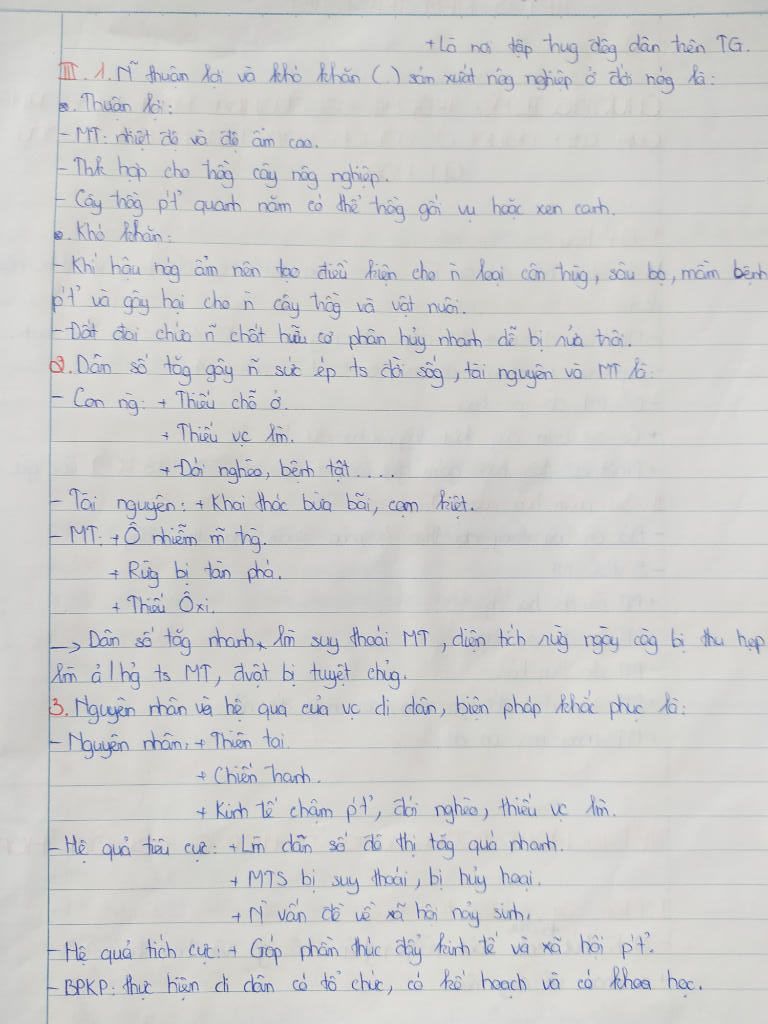 + Là nơi tập trug đôg dân trên TG.
III. 1. N~ thuận lợi và khó khăn (.) sản xuất nôg nghiệp ở đới nóg là:
• Thuận lợi:
- MT: nhiệt độ và độ ẩm cao.
- Thk hợp cho trồg cây nôg nghiệp.
- Cây trồg p't' quanh năm có thể trồg gối vụ hoặc xen canh.
• Khó khăn:
- Khí hậu nóg ẩm nên tạo điều kiện cho n~ loại côn trùg, sâu bọ, mầm bệnh
p't' và gây hại cho n~ cây trồg và vật nuôi.
- Đất đai chứa n~ chất hữu cơ phân hủy nhanh dễ bị rửa trôi.
2. Dân số tăg gây n~ sức ép ts đời sốg, tài nguyên và MT là:
- Con ng: + Thiếu chỗ ở.
+ Thiếu vc lm̀.
+ Đói nghèo, bệnh tật....
- Tài nguyên: + Khai thác bừa bãi, cạn kiệt.
- MT: + Ô nhiễm m~ trg.
+ Rừg bị tàn phá.
+ Thiếu Ôxi.
→ Dân số tăg nhanh, lm̀ suy thoái MT, diện tích rừg ngày càg bị thu hẹp
lm̀ ả/hg̉ ts MT, đ.vật bị tuyệt chủg.
3. Nguyên nhân và hệ quả của vc di dân, biện pháp khắc phục là:
- Nguyên nhân: + Thiên tai.
+ Chiến tranh.
+ Kinh tế chậm p't', đói nghèo, thiếu vc lm̀.
- Hệ quả tiêu cực: + Lm̀ dân số đô thị tăg quá nhanh.
+ MTS bị suy thoái, bị hủy hoại.
+ N~ vấn đề về xã hội nảy sinh.
- Hệ quả tích cực: + Góp phần thúc đẩy kinh tế và xã hội p't'.
- BPKP: thực hiện di dân có tổ chức, có kế hoạch và có khoa học.